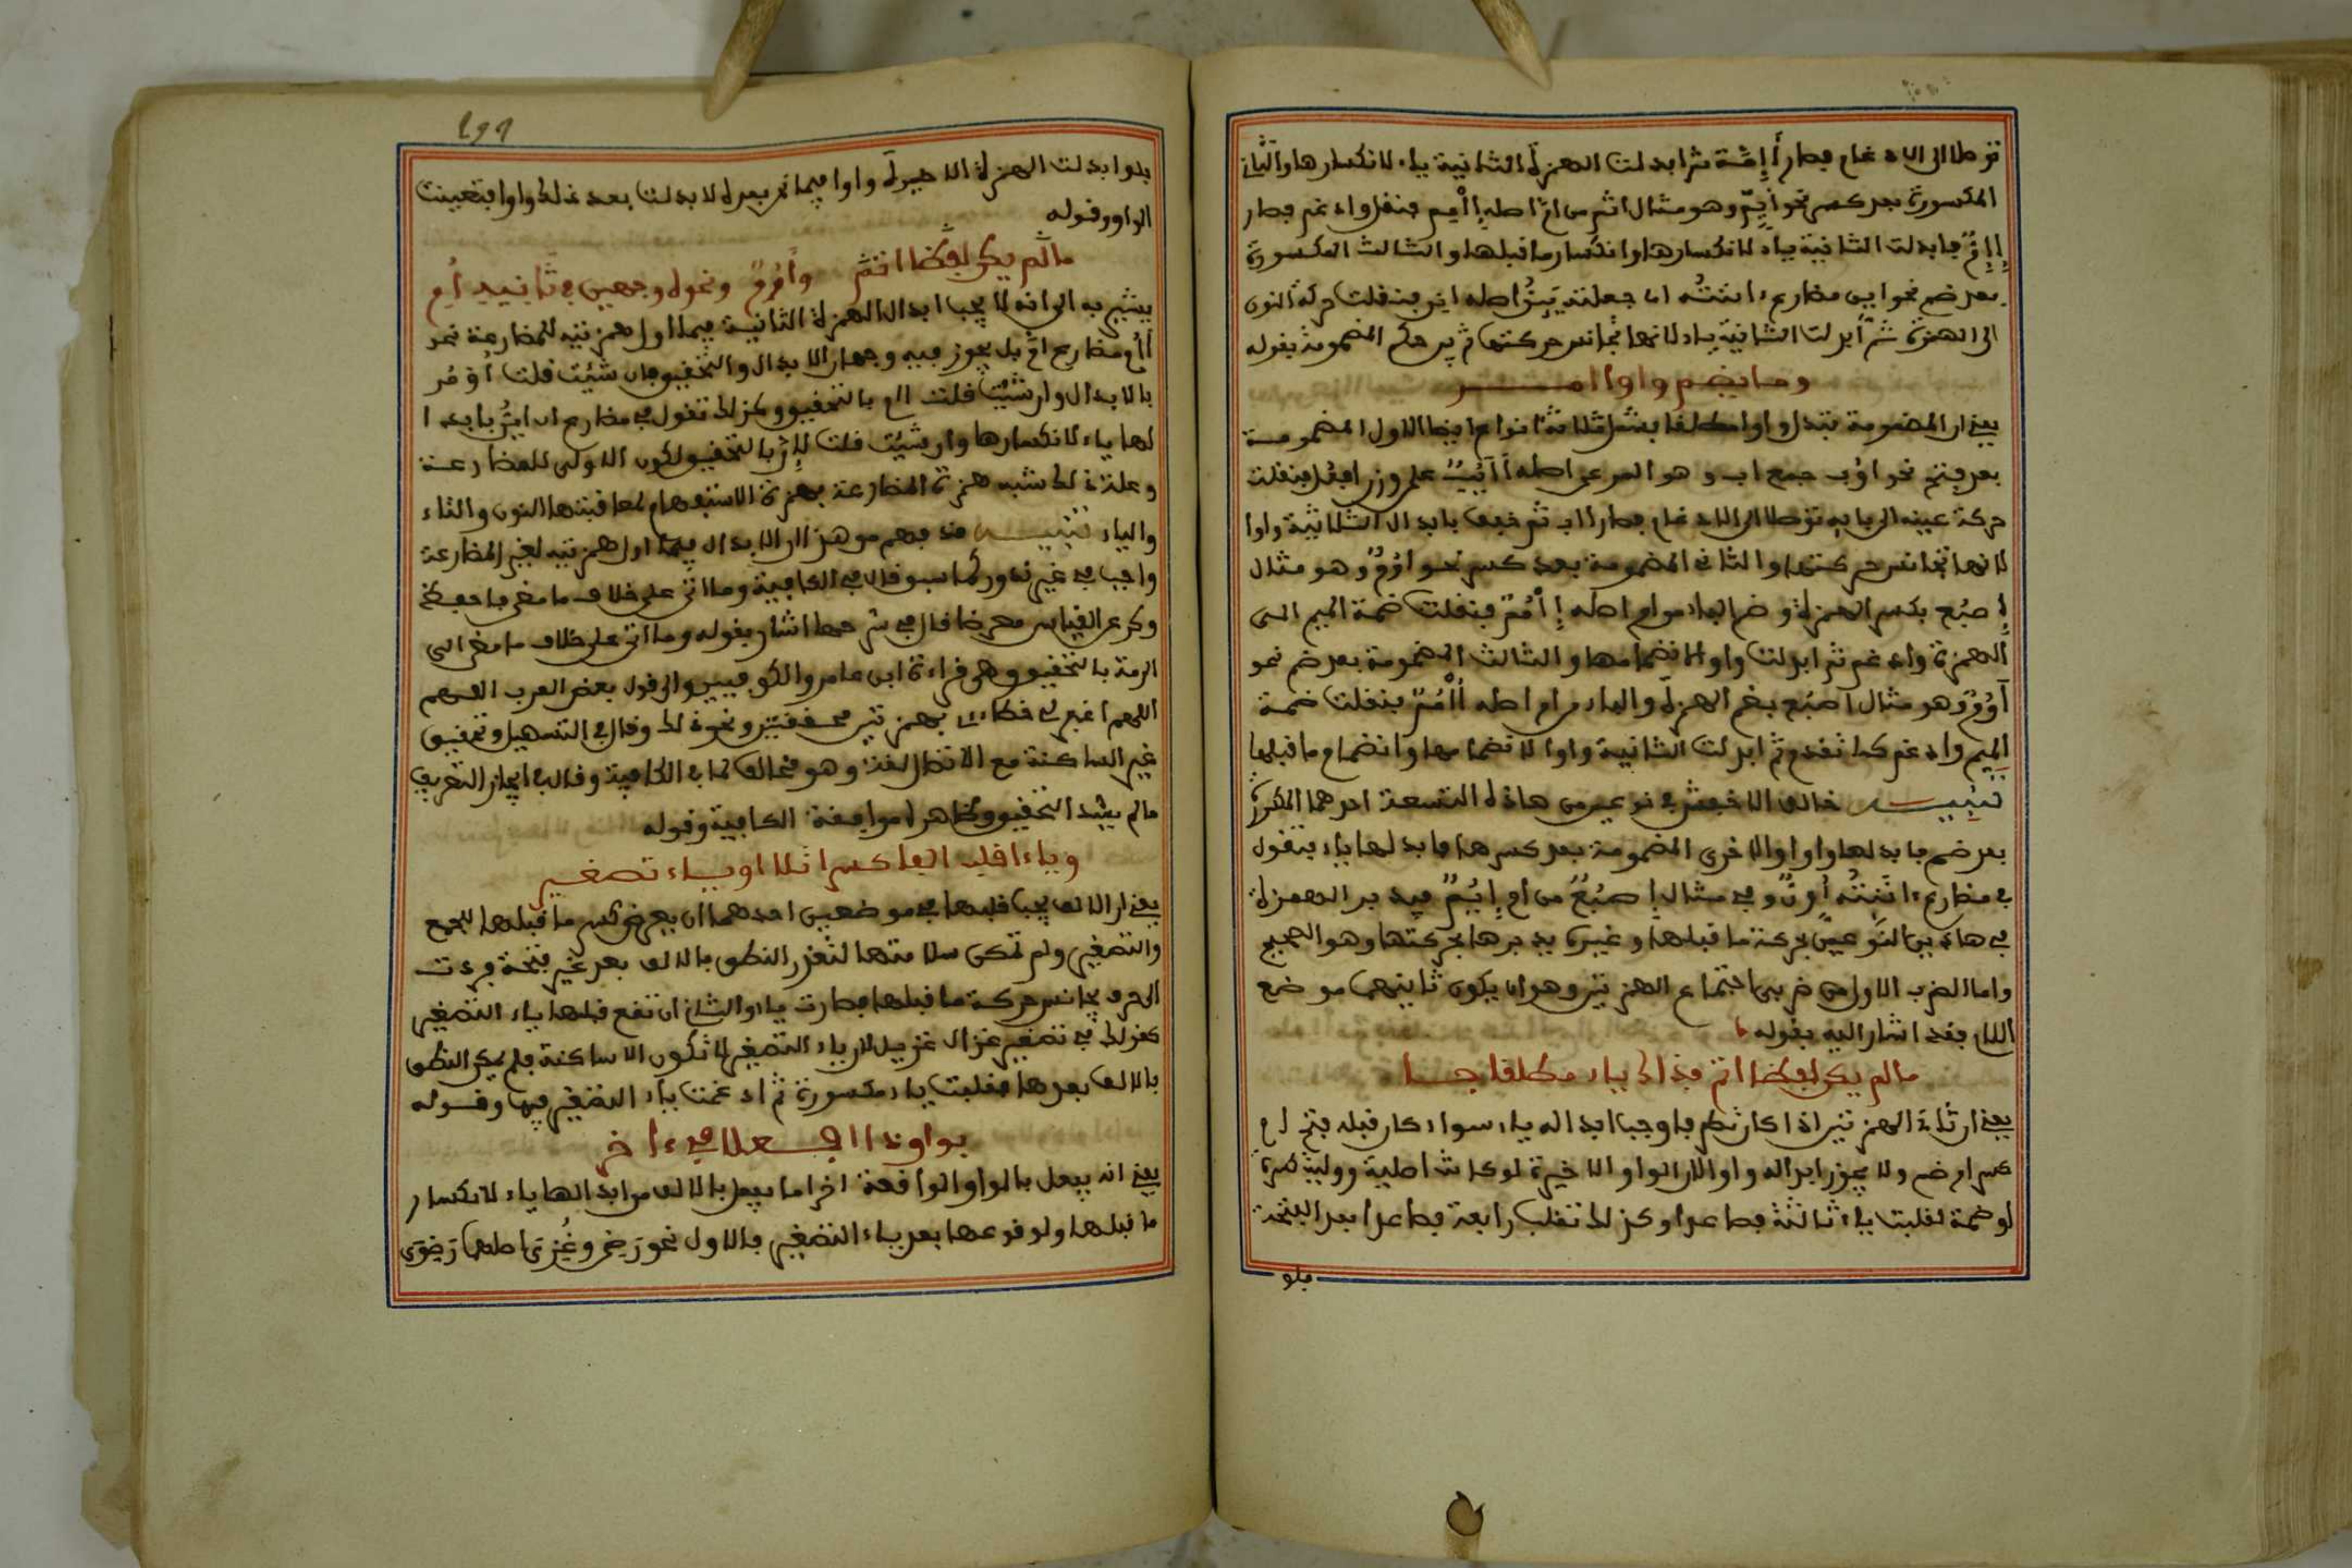 توصلا الى الادغام فصار أَإِمّة ثم ابدلت الهمزة الثانية ياء لانكسارها والثاني
المكسورة بعد كسر نحو اِيِمّ وهو مثال اثم من امّ اصله اِأْمِم فنقل وادغم فصار
إِإِمّ فابدلت الثانية ياء لانكسارها وانكسار ما قبلها والثالث المكسورة
بعد ضم نحو اين مضارع ءاننته اى جعلته يئن اصله ائن فنقلت حركة النون
الى الهمزة ثم ابدلت الثانية ياء لانها تجانس حركتها ثم بين حكم المضمومة بقوله
وما يضم واوا اصر
يعني ان المضمومة تبدل واوا مطلقا بشمل ثلاثة انواع ايضا الاول المضمومة
بعد فتح نحو اَوُب جمع اب وهو المرعى اصله أَأْبُبٌ على وزن افعل فنقلت
حركة عينه الى فايه توصلا الى الادغام فصار أَأُبّ ثم خفف بابدال الثانية واوا
لانها تجانس حركتها والثاني المضمومة بعد كسر نحو اِوُمٌّ وهو مثال
إِصبُع بكسر الهمزة وضم الباء من ام اصله إِأْمُمٌ فنقلت ضمة الميم الى
الهمزة وادغم ثم ابدلت واوا لانضمامها والثالث المضمومة بعد ضم نحو
أُوُمٌّ وهو مثال اصبُع بضم الهمزة والباء من ام اصله أُأْمُمٌ فنقلت ضمة
الميم وادغم كما تقدم ثم ابدلت الثانية واوا لانضمامها وانضمام ما قبلها
تنبيــه خالف الاخفش في نوعين من هاذه التسعة احدهما المكسورة
بعد ضم فابدلها واوا والاخرى المضمومة بعد كسر هما فابدلها ياء فتقول
في مضارع ءاننته أُونّ وفي مثال إِصبُع من ام إِيُمٌّ فيدبر الهمزة
في هاذين النوعين بحركة ما قبلها وغيره يدبرها بحركتها وهو الصحيح
واما الضرب الاول من ضربى اجتماع الهمزتين وهو ان يكون ثانيهما موضع
اللام فقد اشار اليه بقوله
ما لم يكن لفظا اتم فذاك ياء مطلقا جا
يعني ان ثاني الهمزتين اذا كان متطرفا وجب ابداله ياء سواء كان قبله فتح ام
كسر ام ضم ولا يجوز ابداله واوا لان الواو الاخيرة لو كانت اصلية ووليت كسرة
او ضمة لقلبت ياء ثالثة فصاعدا وكذلك تقلب رابعة فصاعدا بعد الفتحة
فلو
191
فلو ابدلت الهمزة الاخيرة واوا فيما نحن بصدده لابدلت بعد ذلك واوا فتعينت
الواو وقوله
ما لم يكن لفظا اتم وأَؤُمّ ونحوه وجهين في ثانيه اُمّ
يشير به الى انه لا يجب ابدال الهمزة الثانية فيما اولى همزتيه للمضارعة نحو
أَؤُمّ مضارع امّ بل يجوز فيه وجهان الابدال والتخفيف فان شئت قلت أَوُمّ
بالابدال وان شئت قلت أَؤُمّ بالتحقيق وكذلك تقول في مضارع ان أَيِنّ بابدا
لها ياء لانكسارها وان شئت قلت أَئِنّ بالتحقيق لكون الاولى للمضارعة
وعلة ذلك شبه همزة المضارعة بهمزة الاستفهام لمعاقبتها النون والتاء
والياء تنبيــه قد فهم من هذا ان الابدال فيما اولى همزتيه لغير المضارعة
واجب في غير ندور كما سبق قال في الكافية وما اتى على خلاف ما مضى فاحفظ
وكن عن القياس معرضا قال في شرحها اشار بقوله وما اتى على خلاف ما مضى الى
ائمة بالتحقيق وهي قراءة ابن عامر والكوفيين والى قول بعض العرب اللهم
اللهم اغفر لي خطائئي بهمزتين محققتين ونحو ذلك وقال في التسهيل وتحقيق
غير الساكنة مع الاتصال لغة وهو مخالف لما في الكافية وقال في ايجاز التعريف
ما لم يشذ التحقيق وظاهره موافقة الكافية وقوله
وياء اقلب الفا كسرا تلا او ياء تصغير
يعني ان الالف يجب قلبها في موضعين احدهما ان يعرض كسر ما قبلها للجمع
والتصغير ولم تمكن سلامتها لتعذر النطق بالالف بعد غير فتحة فردت
الى حرف يجانس حركة ما قبلها فصارت ياء والثاني ان تقع قبلها ياء التصغير
كقولك في تصغير غزال غزيل لان ياء التصغير لا تكون الا ساكنة فلم يمكن النطق
بالالف بعدها فقلبت ياء مكسورة ثم ادغمت ياء التصغير فيها وقوله
بواو ذا افعلا في ءاخر
يعني انه يفعل بالواو الواقعة اخرا ما يفعل بالالف من ابدالها ياء لانكسار
ما قبلها ولوقوعها بعد ياء التصغير فالاول نحو رَضِيَ وغُزِيَ اصلهما رَضِوَ